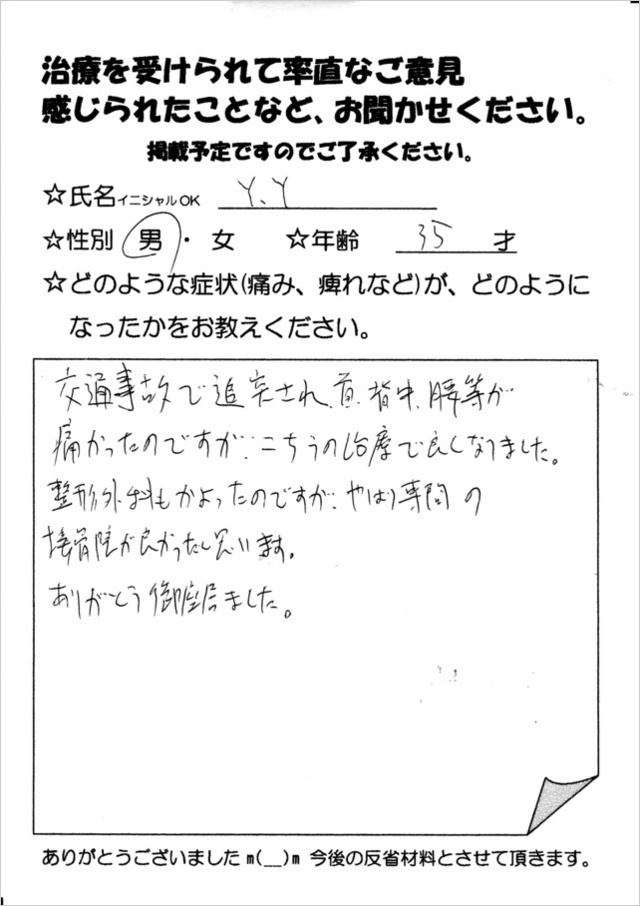 治療を受けられて率直なご意見
感じられたことなど、お聞かせください。
掲載予定ですのでご了承ください。
☆氏名イニシャルOK Y.Y
☆性別 男・女 ☆年齢 35 才
☆どのような症状(痛み、痺れなど)が、どのように
なったかをお教えください。
交通事故で追突され、首、背中、腰等が
痛かったのですが、こちらの治療で良くなりました。
整形外科もかよったのですが、やはり専門の
接骨院が良かったと思います。
ありがとう御座居ました。
ありがとうございました m(__)m 今後の反省材料とさせて頂きます。